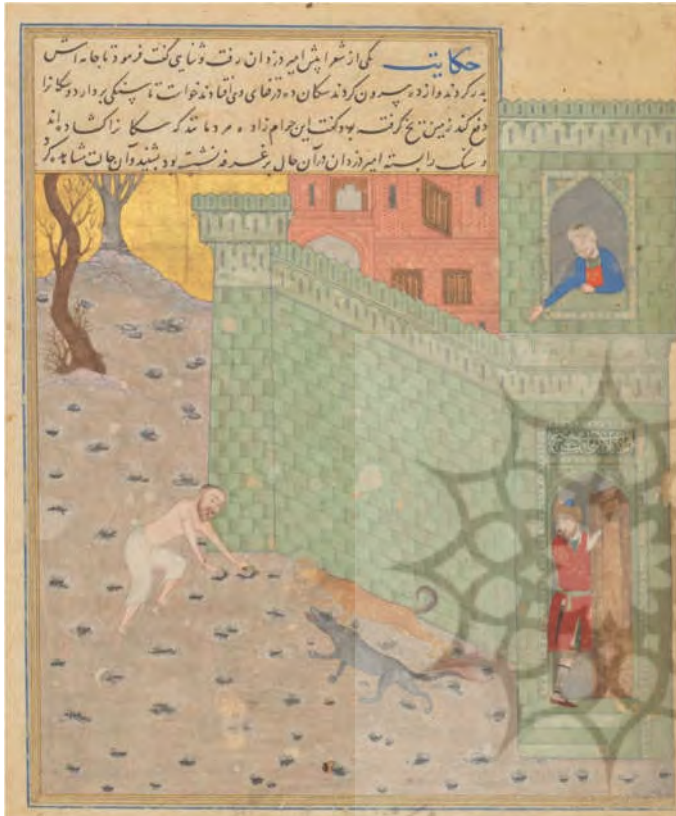 حکایت یکی از شعرا پیش امیر دزدان رفت و ثنایی گفت فرمود تا جامه اش
بدر کردند و از ده بیرون کردند سکان ده در قفای وی افتادند خواست تا سنکی بردارد و سکانرا
دفع کند زمین یخ گرفته بود گفت این حرام زاده مردمانند که سکانرا کشاده اند
و سنک را بسته امیر دزدان در آن حال بر غرفه نشسته بود بشنید و آن حالت مشاهده کرد